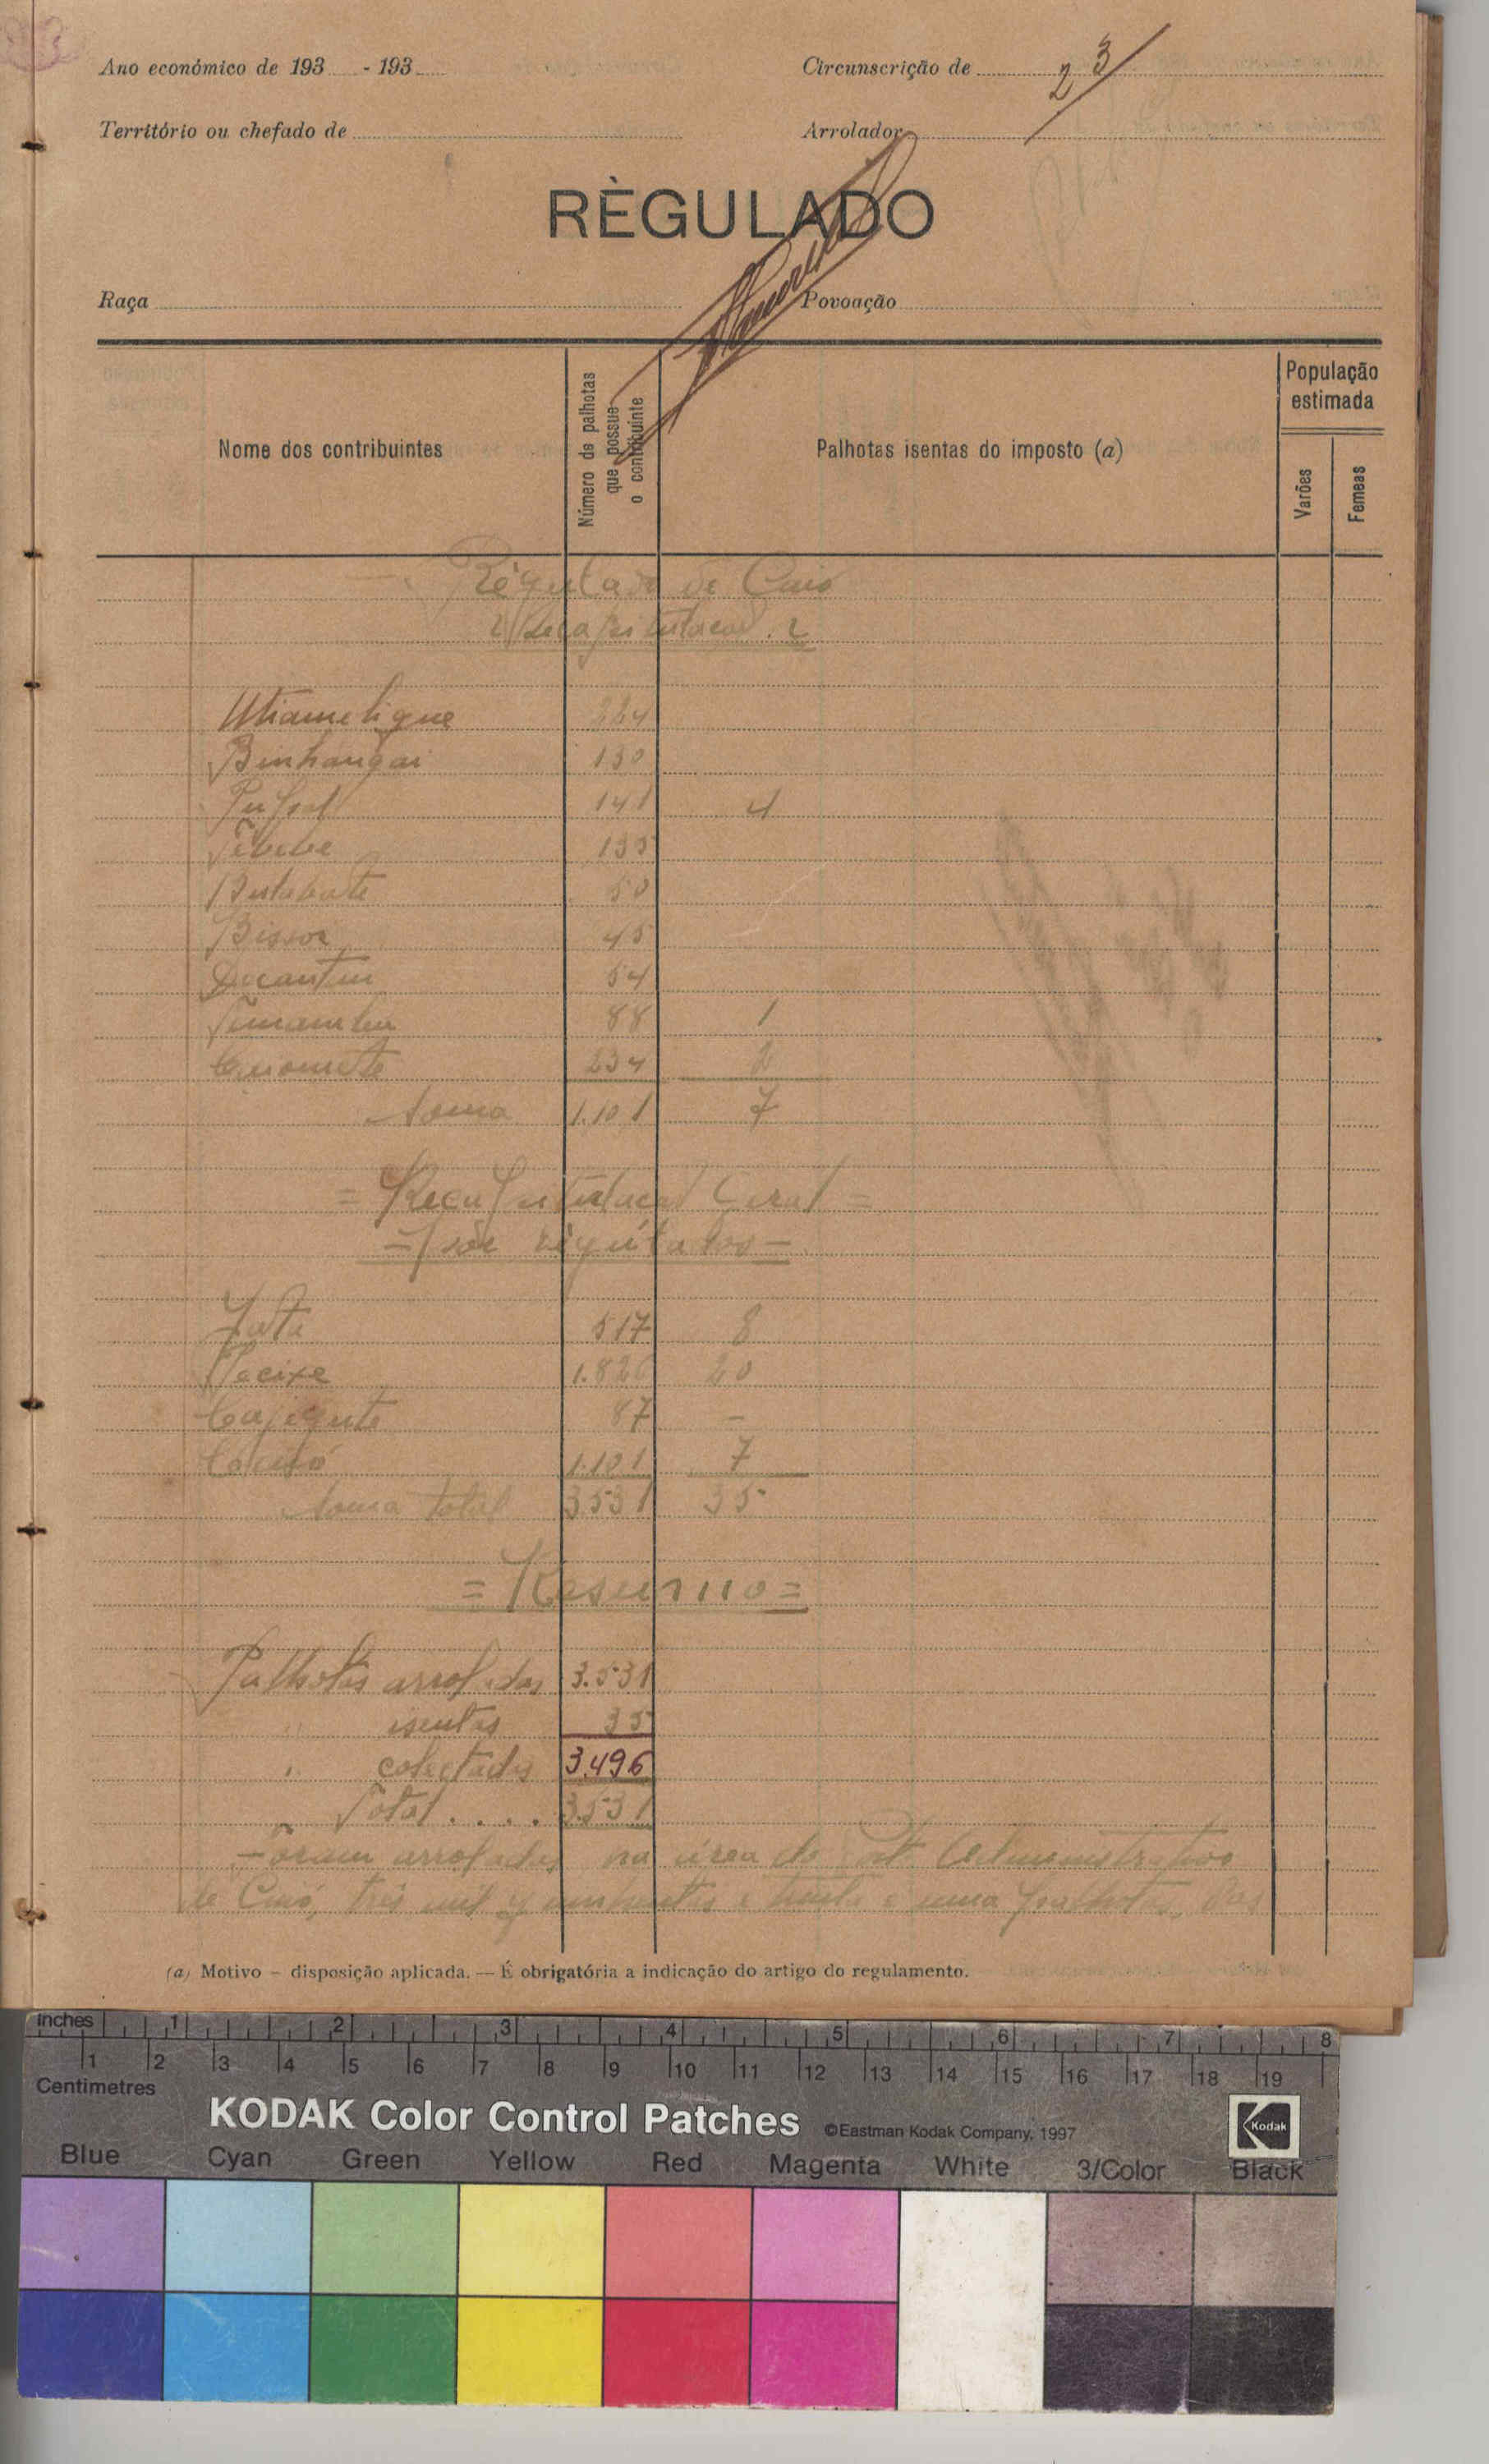 Ano económico de 193 - 193
Circunscrição de
23
Território ou chefado de
Arrolador
RÈGULADO
Raça
Povoação
Nome dos contribuintes
Número de palhotas que possue o contribuinte
Palhotas isentas do imposto (a)
População estimada
Varões
Femeas
Régulado de Caió
Recapitulação
Utiameligue 264
Binhangai 130
141 4
135
Butabate 50
Bissor 45
54
88 1
234 2
Soma 1.101 7
= Recapitulação Geral =
- dos régulados -
Jata 517 8
Pecixe 1.826 20
Cajegute 87 -
Caió 1.101 7
Soma total 3.531 35
= Resumo =
Palhotas arroladas 3.531
" isentas 35
" colectadas 3.496
Total .... 3.531
Foram arroladas na área do Administrativo
de Caió, três mil quinhentas e trinta e uma palhotas, das
(a) Motivo - disposição aplicada. — É obrigatória a indicação do artigo do regulamento.
inches 1 2 3 4 5 6 7 8
1 2 3 4 5 6 7 8 9 10 11 12 13 14 15 16 17 18 19
Centimetres
KODAK Color Control Patches ©Eastman Kodak Company, 1997 Kodak
Blue Cyan Green Yellow Red Magenta White 3/Color Black